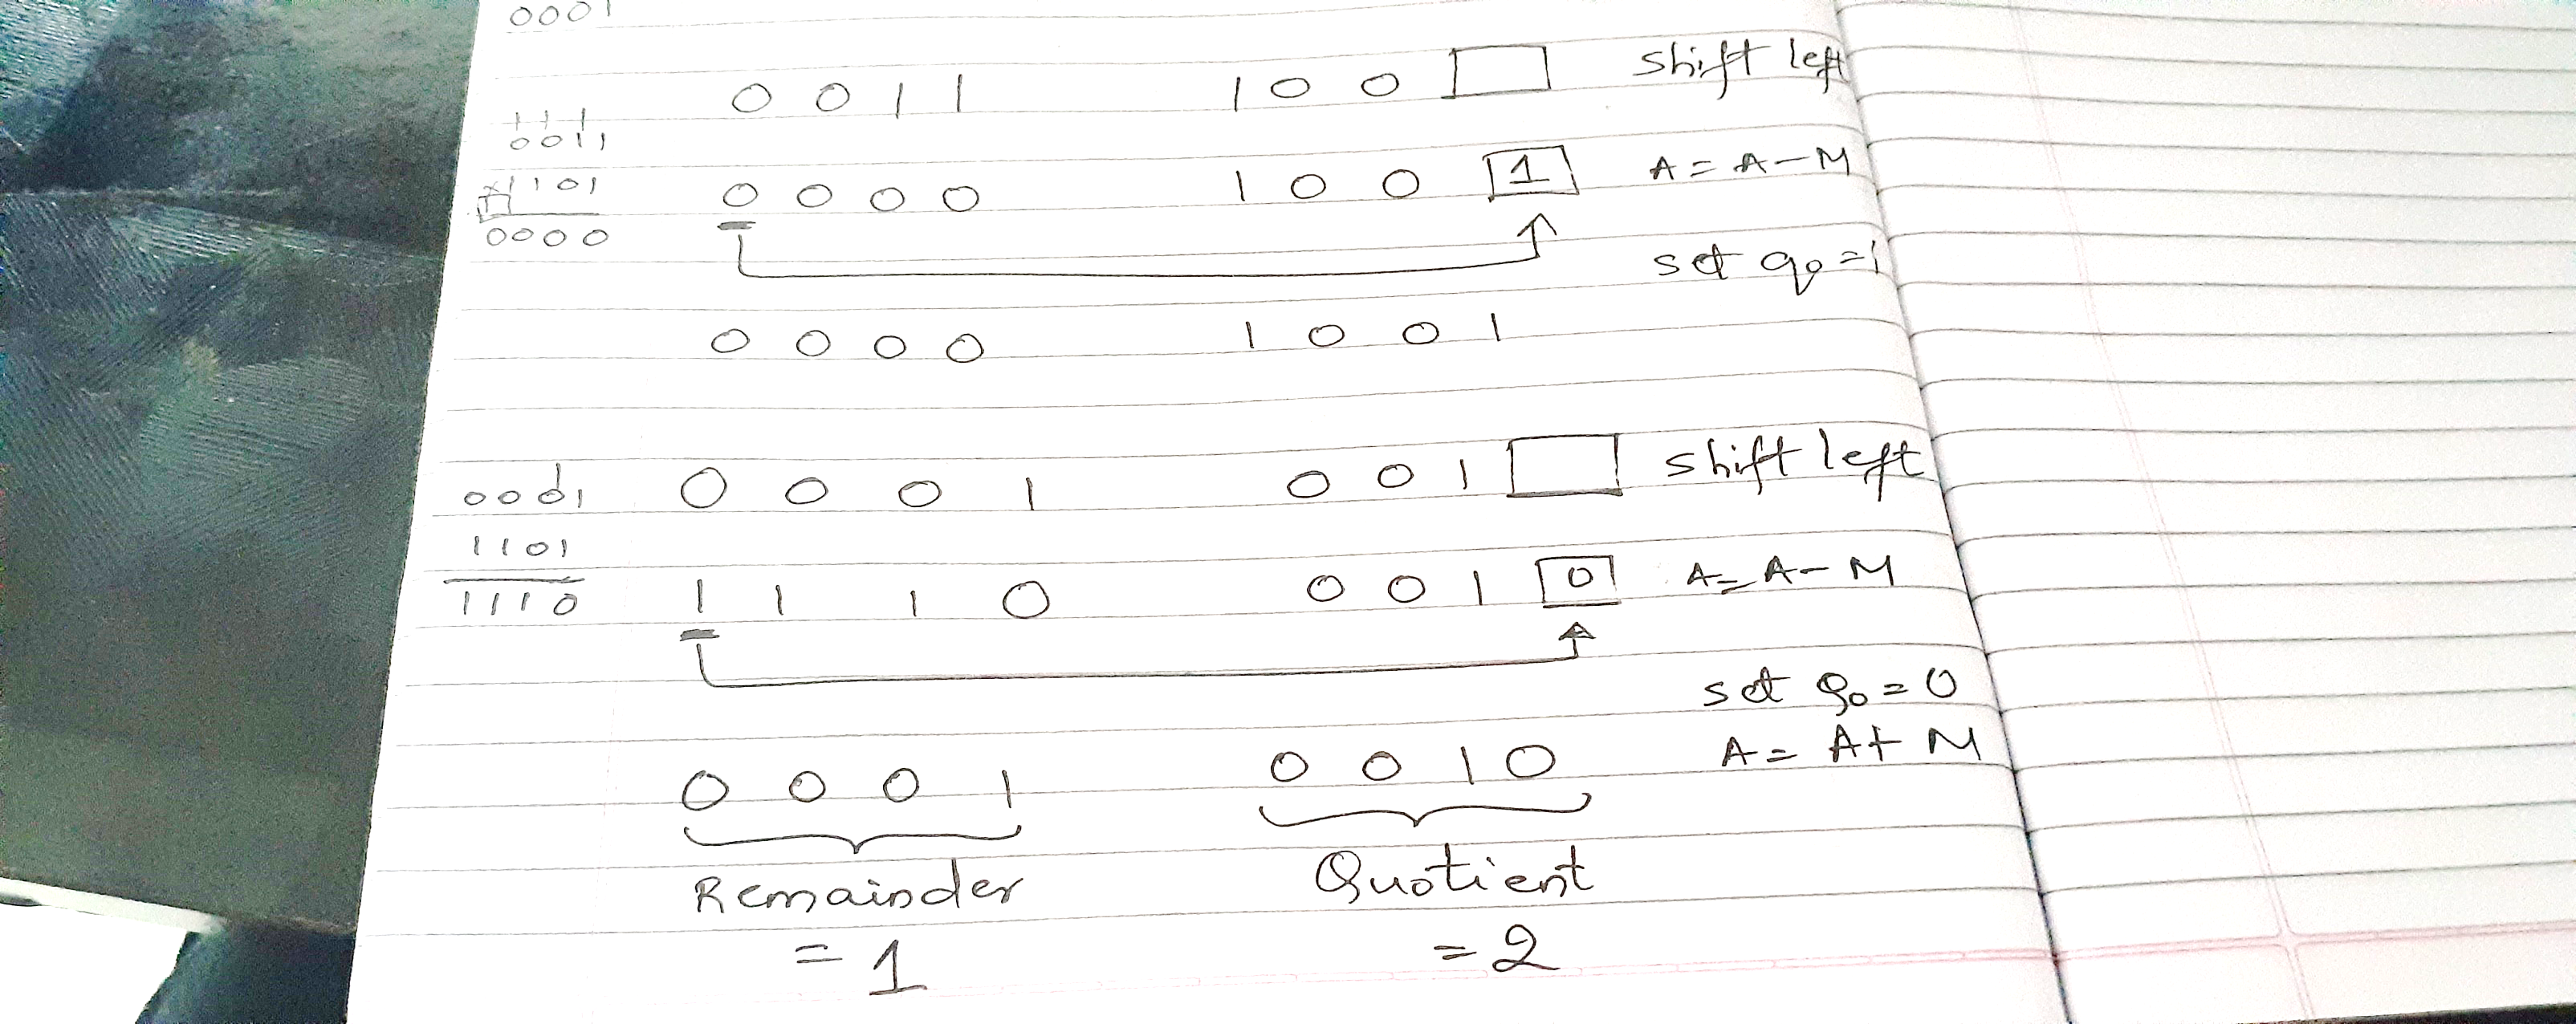 0001
0 0 1 1 1 0 0 shift left
1 1 1
0011
1101 0 0 0 0 1 0 0 1 A = A - M
0000
set q0 = 1
0 0 0 0 1 0 0 1
0001 0 0 0 1 0 0 1 shift left
1101
1110 1 1 1 0 0 0 1 0 A = A - M
set Q0 = 0
0 0 0 1 0 0 1 0 A = A + M
Remainder Quotient
= 1 = 2